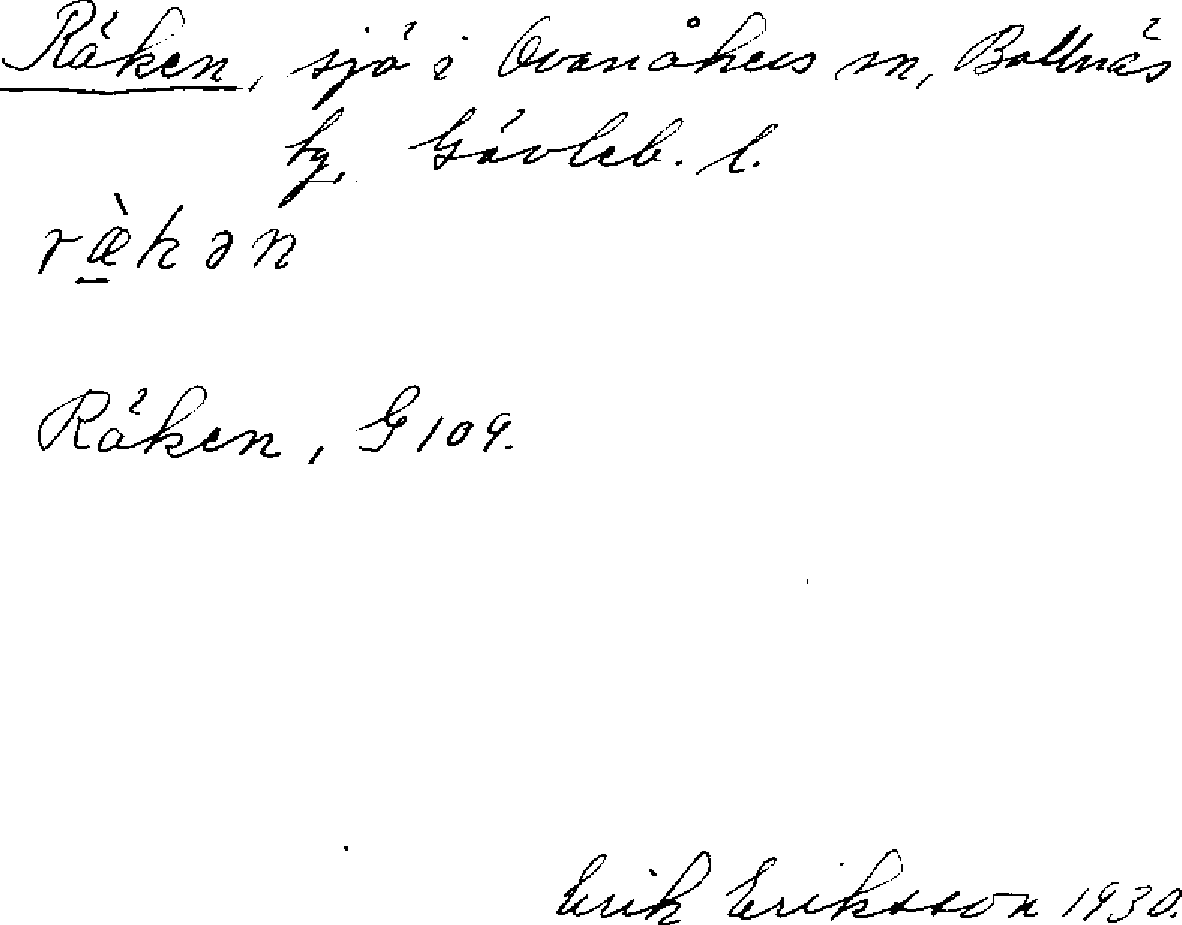 Räken, sjö i Ovanåkers sn, Bollnäs
tg, Gävleb. l.
ræ̠̀kən
Räken, G 109.
Erik Eriksson 1930.